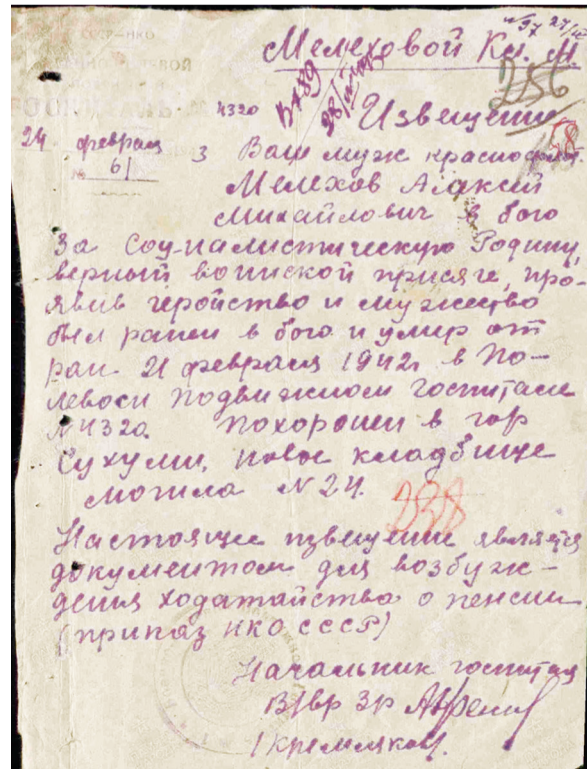 Мелеховой Кл. М
256
4320
Извещение
24 февраля 3
№ 61
Ваш муж краснофлот.
Мелехов Алексей
Михайлович в бою
за Социалистическую Родину,
верный воинской присяге, про-
явив геройство и мужество
был ранен в бою и умер от
ран 21 февраля 1942г в По-
левом подвижном госпитале
№4320. Похоронен в гор
Сухуми, новое кладбище
могила №24.
338
Настоящее извещение является
документом для возбуж-
дения ходатайства о пенсии
(приказ НКО СССР)
Начальник госпиталя
В/вр 3р